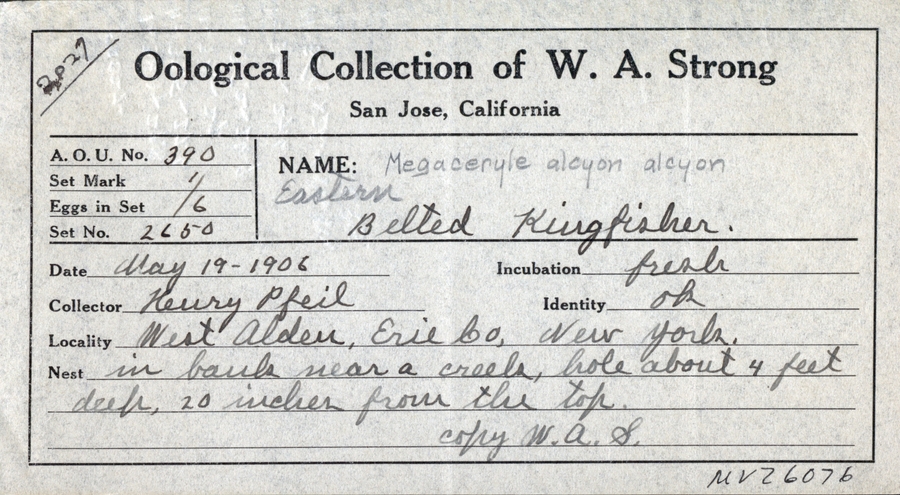 Oological Collection of W. A. Strong
San Jose, California
A. O. U. No. 390
Set Mark 1/6
Eggs in Set
Set No. 2650
NAME: Megaceryle alcyon alcyon
Eastern
Belted Kingfisher.
Date May 19-1906
Incubation fresh
Collector Henry Pfeil
Identity ok
Locality West Alden, Erie Co, New York.
Nest in bank near a creek, hole about 4 feet
deep, 20 inches from the top.
copy W. A. S.
MVZ6076